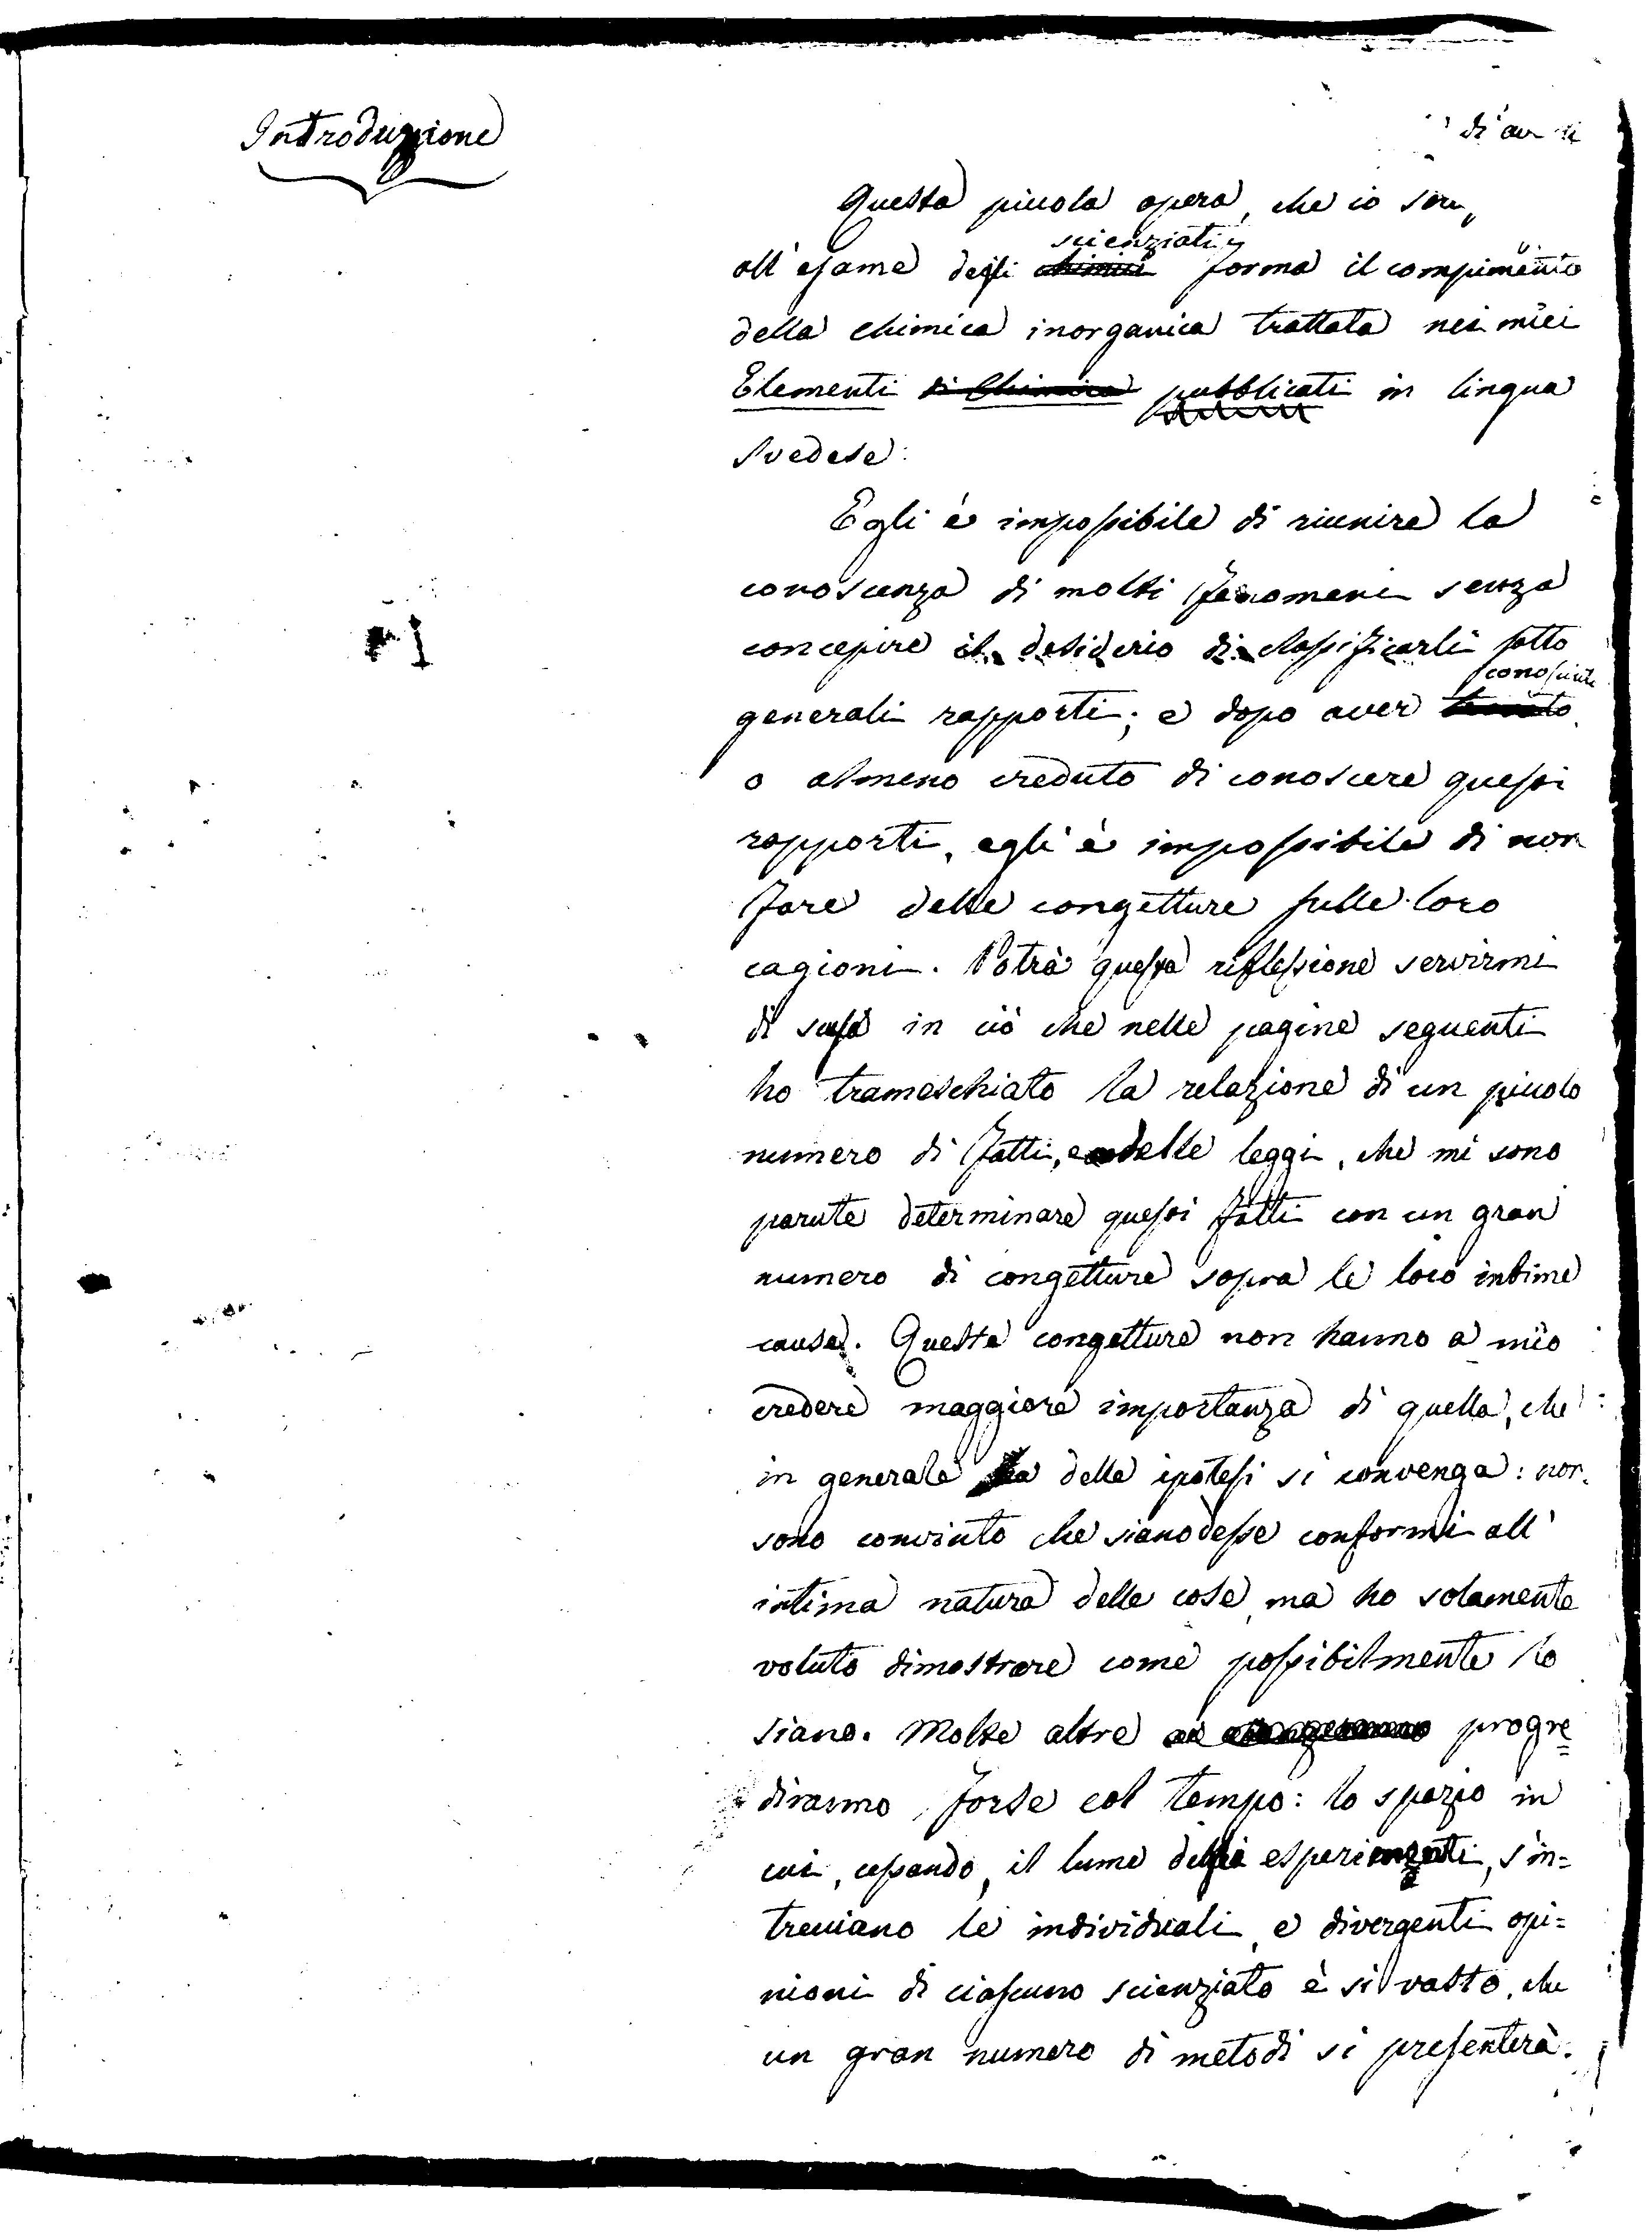 Introduzione
Questa piccola opera, che io
all'esame degli scienziati forma il compimento
della chimica inorganica trattata nei miei
Elementi di Chimica pubblicati in lingua
Svedese:
Egli è impossibile di riunire la
conoscenza di molti fenomeni senza
concepire il desiderio di classificarli sotto
generali rapporti; e dopo aver conosciuti
o almeno creduto di conoscere questi
rapporti, egli è impossibile di non
fare delle congetture sulle loro
cagioni. Potrà questa riflessione servirmi
di scusa in ciò che nelle pagine seguenti
ho trameschiato la relazione di un piccolo
numero di fatti, e delle leggi, che mi sono
parute determinare questi fatti con un gran
numero di congetture sopra le loro intime
cause. Queste congetture non hanno a mio
credere maggiore importanza di quella, che
in generale a delle ipotesi si convenga: non
sono convinto che siano desse conformi all'
intima natura delle cose, ma ho solamente
voluto dimostrare come possibilmente lo
siano. Molte altre progre=
diranno forse col tempo: lo spazio in
cui, cessando il lume degli esperimenti, s'in=
trecciano le individuali, e divergenti opi=
nioni di ciascuno scienziato è sì vasto, che
un gran numero di metodi si presenterà.